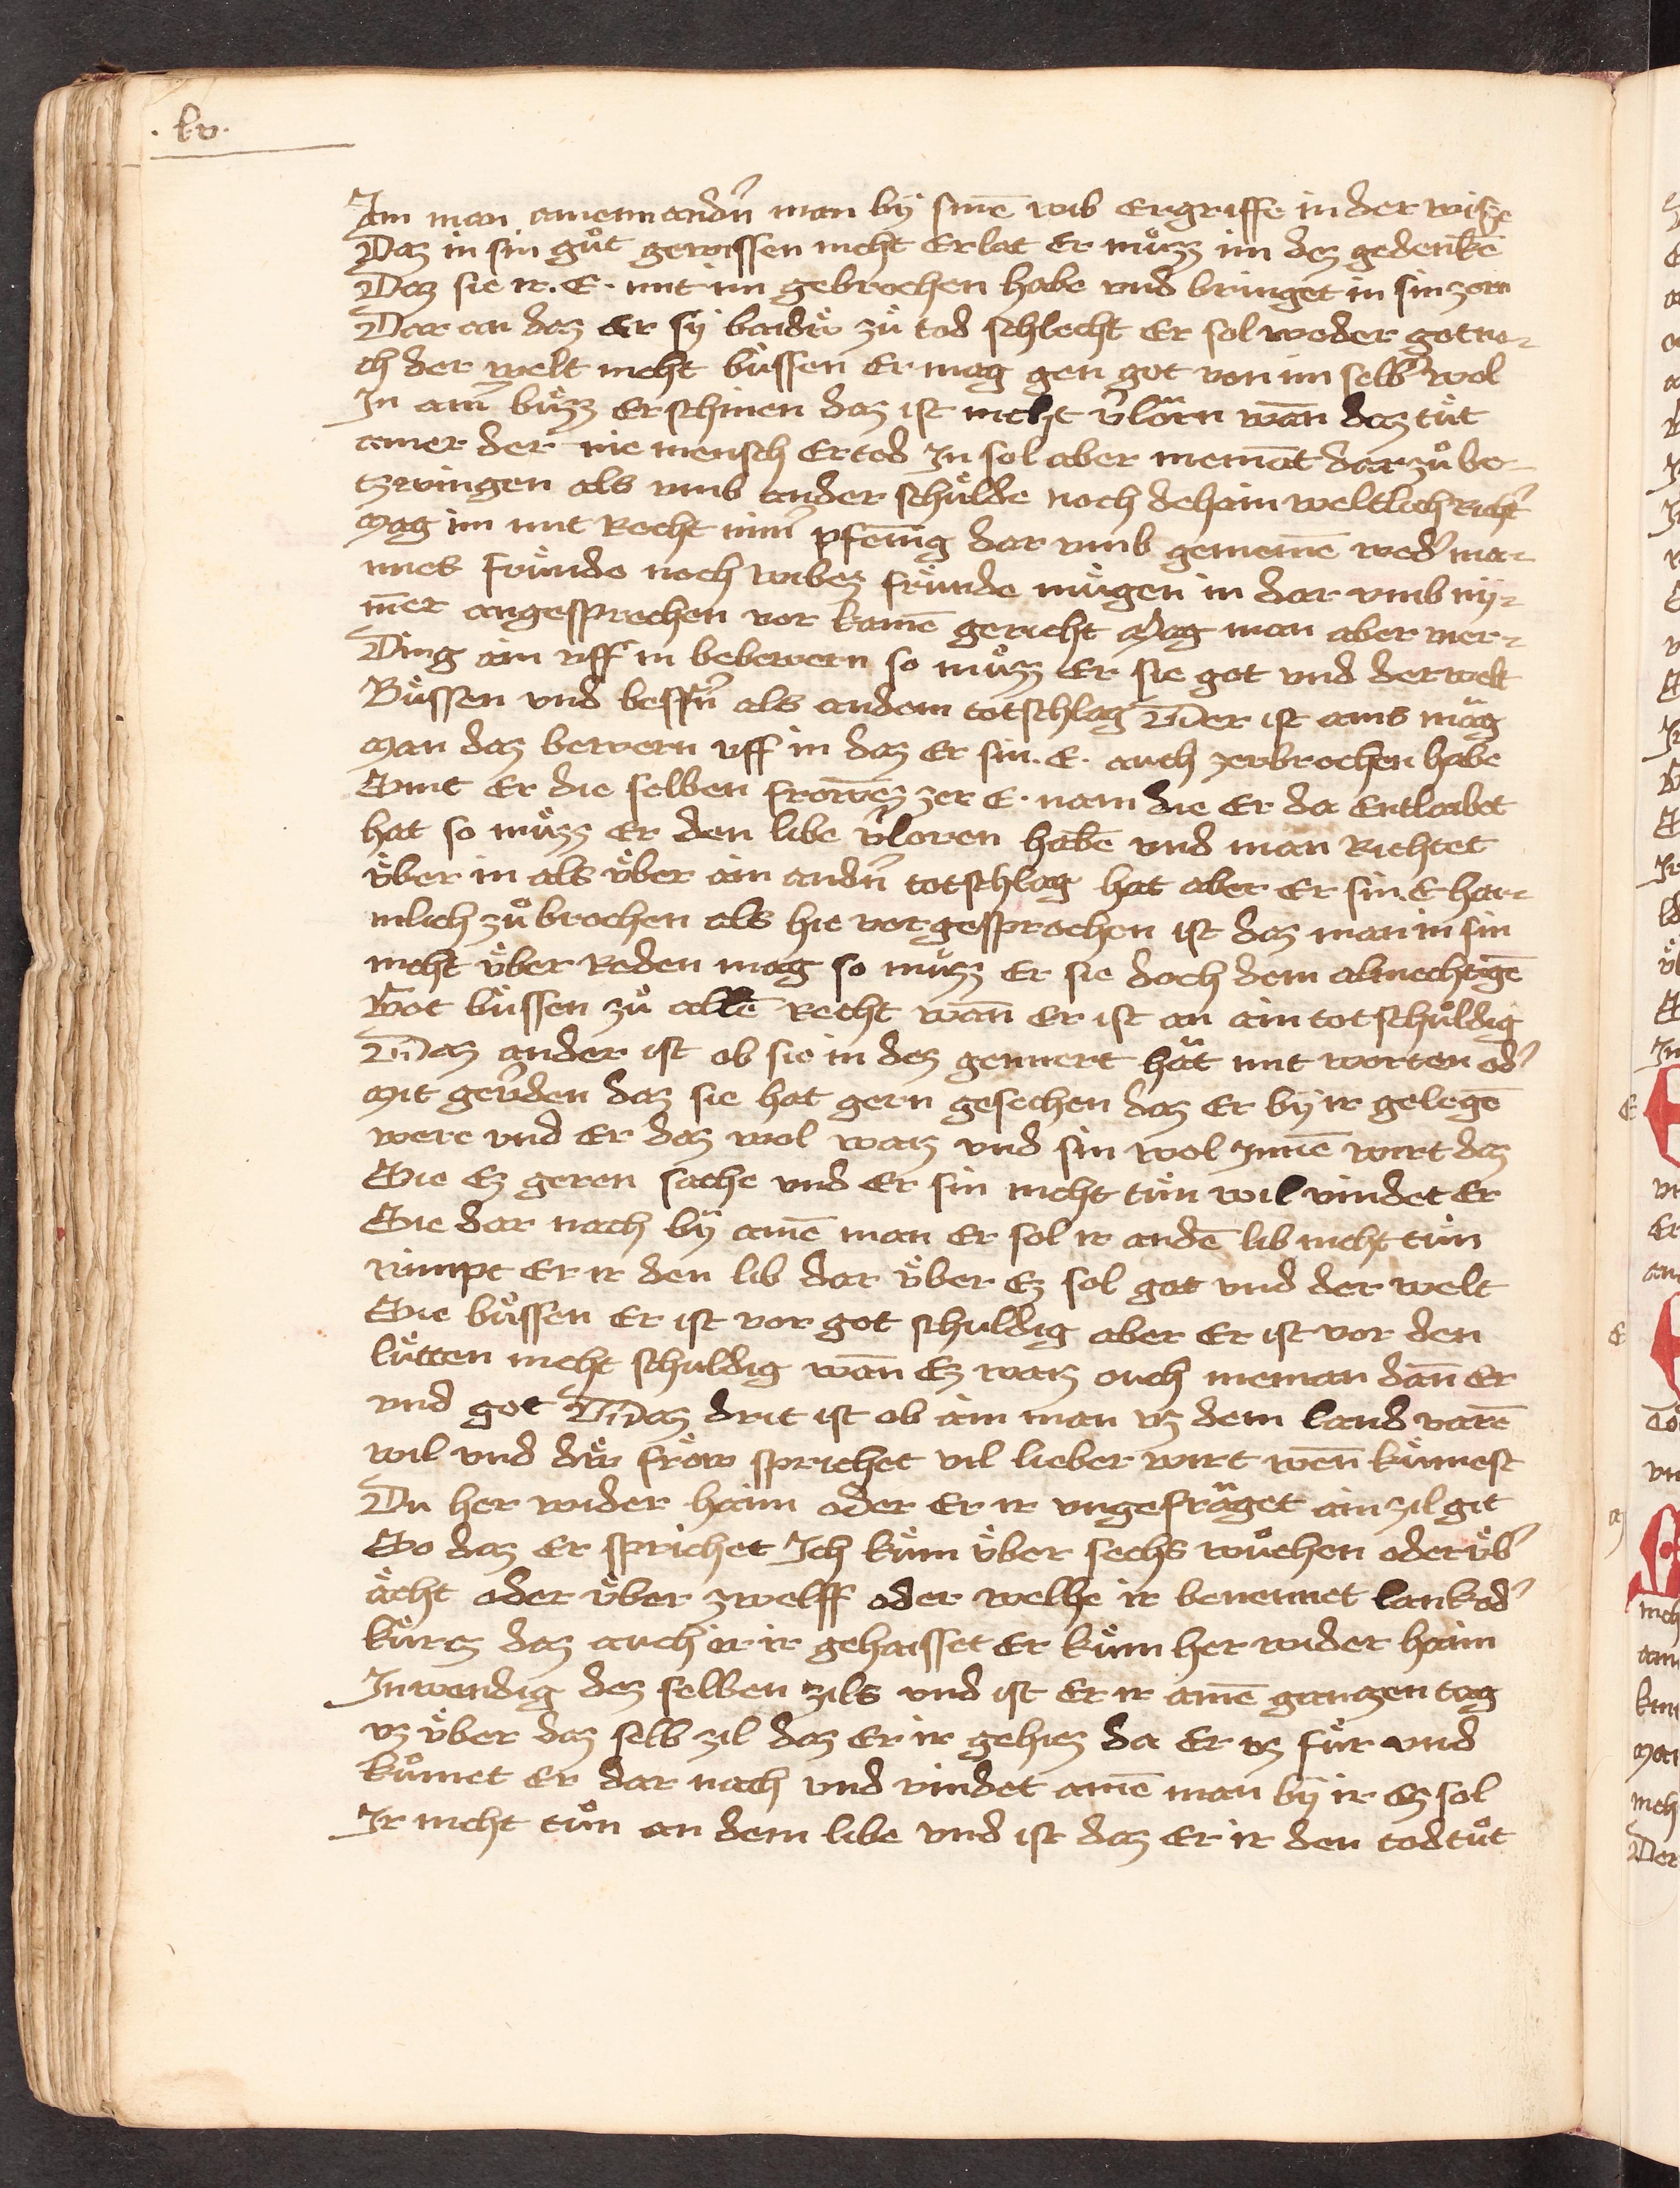 . lv .
Ain man ainenn andn̄ man bÿ sinē wib ergriffe in der wise
Daz in sin gůt gewissen nicht Erlat Er můzz im dez gedenkē
Daz sie ir . E . mit im gebrochen habe vnd bringet in sin zorn
Dar an daz Er sÿ baidiv zů tod schlecht Er sol weder got no-
ch der welt nicht bůssen Er mag gen got von im selb' wol
In ain' bůzz Erschinen daz ist nicht v'lorn wan̄ daz tůt
ainer der nie mensch Ertod In sol aber niemāt dar zů be-
tzwingen als vmb ander schulde noch dehain weltlich richt'
Mag im mit Recht nim' pfennīg dar vmb geniemē wed' ma-
nnes fründe noch wibez fründe mügen in dar vmb ny-
m̄er angesprechen vor kainē gericht Mag man aber vier-
Ding ain vff in bebewern so můzz Er sie got vnd der welt
Bůssen vnd bessn̄ als andern totschlag D' Der ist ains mag
Man daz bewern vff in daz Er sin . E . auch zerbrochen habe
Simt Er die selben frowēz zer E . nam die Er da Entlaibet
hat so můzz Er den libe v'loren habē vnd man Richtet
v̈ber in als v̈ber ain andn̄ totschlag hat aber Er sin . E hai-
mlich zůbrochen als hie vorgesprochen ist daz man in sin
nicht v̈ber Reden mag so můzz Er sie doch dem almechtigē
Got bůssen zů allē Recht wan̄ Er ist an ain totschuldig
Daz ander ist ob sie in dez geinnert hat mit worten od'
Mit geb'den daz sie hat gern gesechen daz Er bÿ ir gelegē
were vnd Er daz wol waiz vnd sin wol Innē wirt daz
Sie Ez geren sache vnd Er sin nicht tůn wil vindet Er
Sie dar nach bÿ ainē man Er sol ir andē lib nicht tůn
nimpt Er ir den lib dar v̈ber Ez sol got vnd der welt
Sie bůssen Er ist vor got schuldig aber Er ist vor den
lütten nicht schuldig wan̄ Ez waiz ouch nieman dan̄ Er
vnd got Daz drit ist ob ain man vz dem land varē
wil vnd div frow sprichet vil lieber wirt wen̄ kümest
Du her wider haim oder Er ir vngefraget ain zil git
So daz Er sprichet Ich küm v̈ber sechs wochen oder v̈b'
ächt oder v̈ber zwelff oder welhe ir benennet lank od'
kürtz daz auch er ir gehaisset Er küm her wider haim
Inwendig dez selben zils vnd ist Er ir ainē gantzen tag
vz v̈ber daz selb zil daz Er ir gehiez da Er vz für vnd
kümet Er dar nach vnd vindet ainē man bÿ ir Ez sol
Ir nicht tůn an dem libe vnd ist daz Er ir den tod tůt